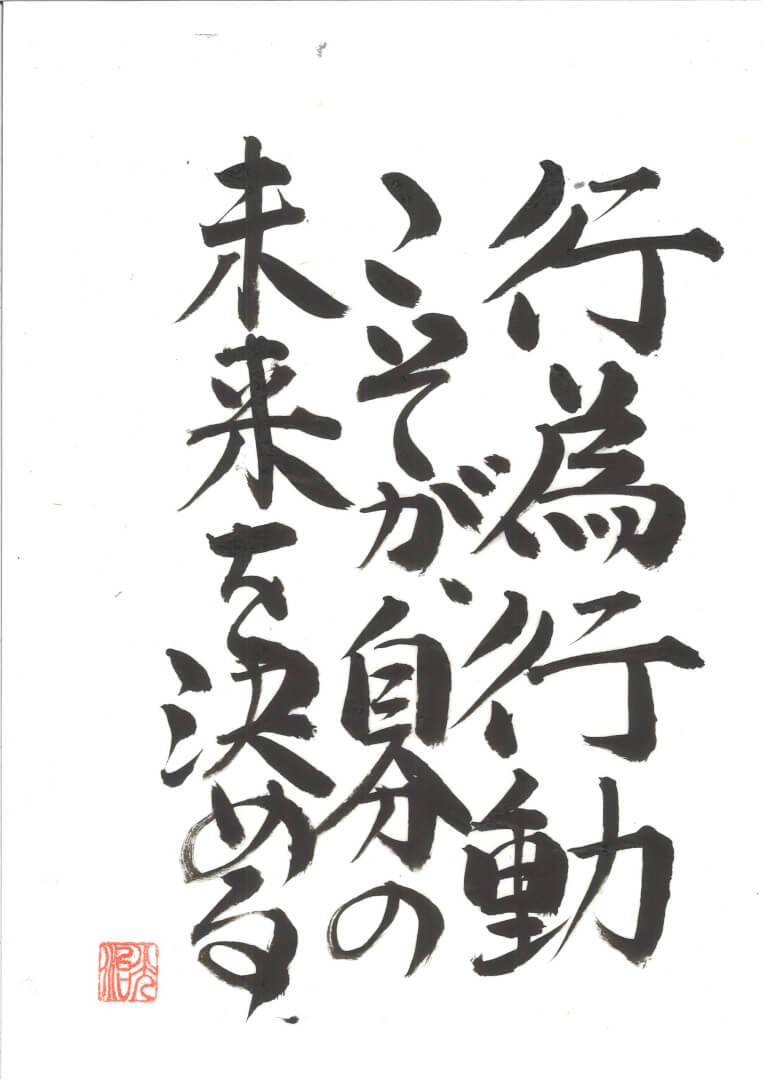 行為行動
こそが、自分の
未来を決める。